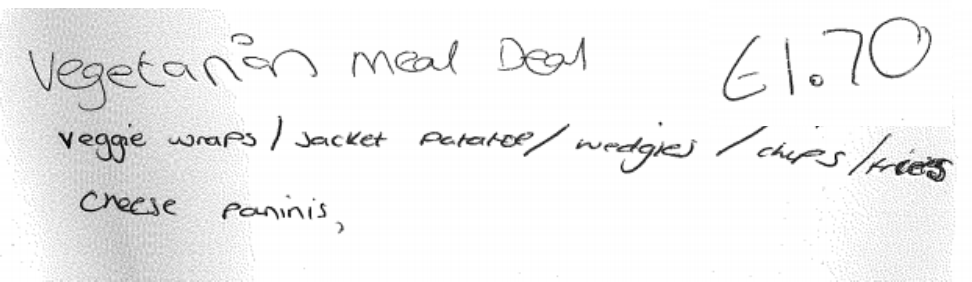 Vegetarian Meal Deal £1.70
veggie wraps / Jacket patatoe / wedgies / chips / fries
cheese paninis,